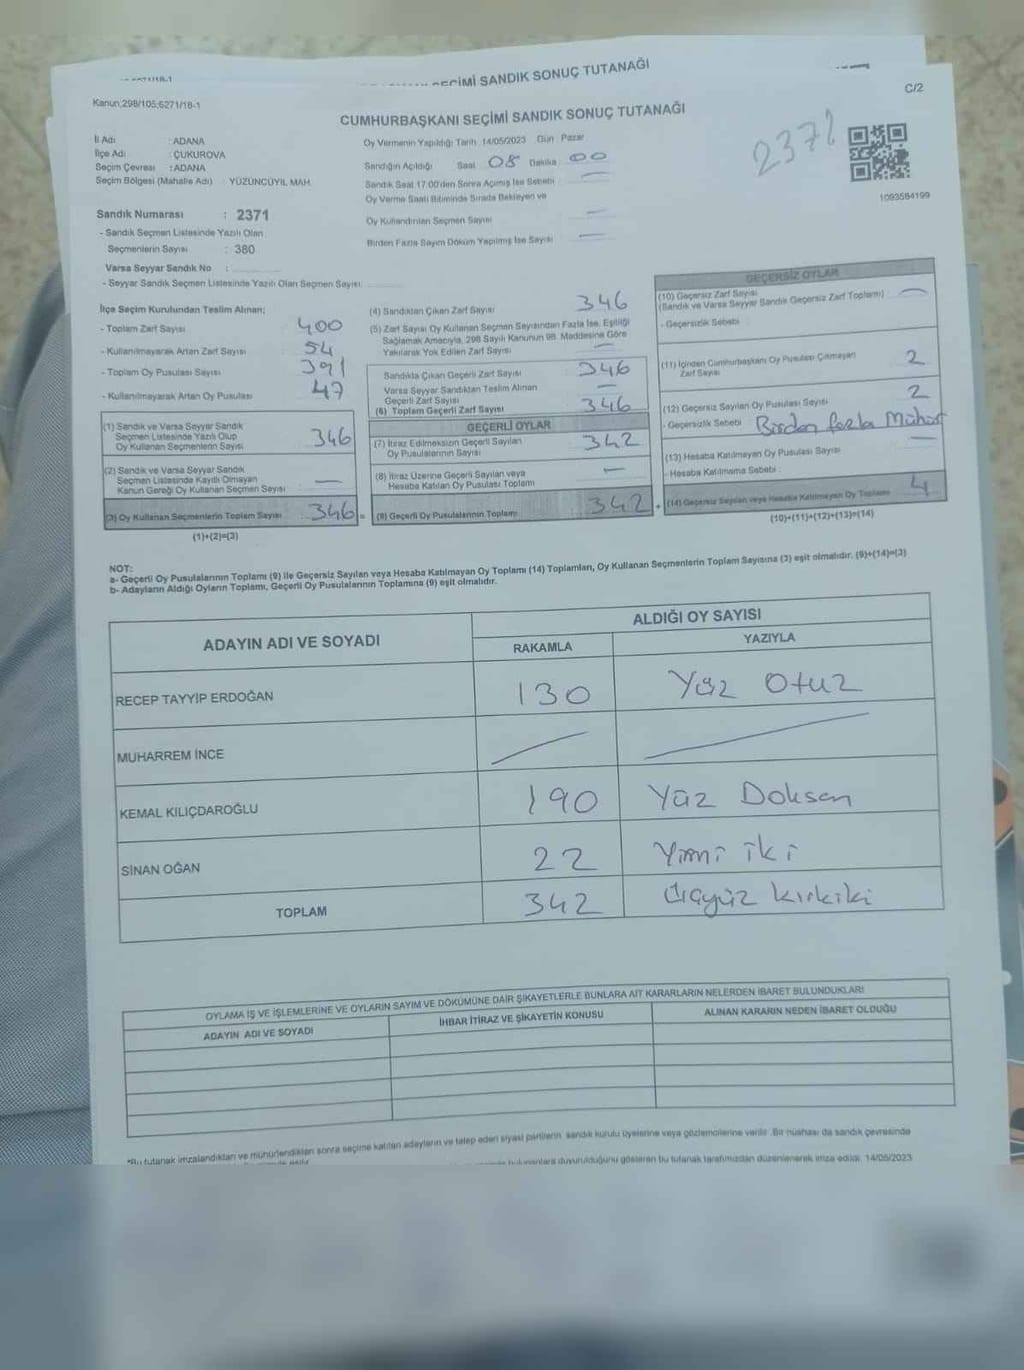 SEÇİMİ SANDIK SONUÇ TUTANAĞI
Kanun:298/105;6271/18-1
C/2
CUMHURBAŞKANI SEÇİMİ SANDIK SONUÇ TUTANAĞI
2371
1093584199
İl Adı : ADANA
İlçe Adı : ÇUKUROVA
Seçim Çevresi : ADANA
Seçim Bölgesi (Mahalle Adı) : YÜZÜNCÜYIL MAH.
Sandık Numarası : 2371
- Sandık Seçmen Listesinde Yazılı Olan
Seçmenlerin Sayısı : 380
Varsa Seyyar Sandık No :
- Seyyar Sandık Seçmen Listesinde Yazılı Olan Seçmen Sayısı
Oy Vermenin Yapıldığı Tarih 14/05/2023 Gün Pazar
Sandığın Açıldığı Saat 08 Dakika 00
Sandık Saat 17.00'den Sonra Açılmış İse Sebebi
Oy Verme Saati Bitiminde Sırada Bekleyen ve
Oy Kullandırılan Seçmen Sayısı
Birden Fazla Sayım Döküm Yapılmış İse Sayısı
İlçe Seçim Kurulundan Teslim Alınan;
- Toplam Zarf Sayısı 400
- Kullanılmayarak Artan Zarf Sayısı 54
- Toplam Oy Pusulası Sayısı 391
- Kullanılmayarak Artan Oy Pusulası 47
(1) Sandık ve Varsa Seyyar Sandık
Seçmen Listesinde Yazılı Olup
Oy Kullanan Seçmenlerin Sayısı 346
(2) Sandık ve Varsa Seyyar Sandık
Seçmen Listesinde Kayıtlı Olmayan
Kanun Gereği Oy Kullanan Seçmen Sayısı —
(3) Oy Kullanan Seçmenlerin Toplam Sayısı 346 =
(1)+(2)=(3)
(4) Sandıktan Çıkan Zarf Sayısı 346
(5) Zarf Sayısı Oy Kullanan Seçmen Sayısından Fazla İse, Eşitliği
Sağlamak Amacıyla, 298 Sayılı Kanunun 98. Maddesine Göre
Yakılarak Yok Edilen Zarf Sayısı —
Sandıkta Çıkan Geçerli Zarf Sayısı 346
Varsa Seyyar Sandıktan Teslim Alınan
Geçerli Zarf Sayısı —
(6) Toplam Geçerli Zarf Sayısı 346
GEÇERLİ OYLAR
(7) İtiraz Edilmeksizin Geçerli Sayılan
Oy Pusulalarının Sayısı 342
(8) İtiraz Üzerine Geçerli Sayılan veya
Hesaba Katılan Oy Pusulası Toplamı —
(9) Geçerli Oy Pusulalarının Toplamı 342 +
GEÇERSİZ OYLAR
(10) Geçersiz Zarf Sayısı
(Sandık ve Varsa Seyyar Sandık Geçersiz Zarf Toplamı) —
- Geçersizlik Sebebi :
(11) İçinden Cumhurbaşkanı Oy Pusulası Çıkmayan
Zarf Sayısı 2
(12) Geçersiz Sayılan Oy Pusulası Sayısı 2
- Geçersizlik Sebebi Birden fazla Mühür
(13) Hesaba Katılmayan Oy Pusulası Sayısı —
- Hesaba Katılmama Sebebi :
(14) Geçersiz Sayılan veya Hesaba Katılmayan Oy Toplamı 4
(10)+(11)+(12)+(13)=(14)
NOT:
a- Geçerli Oy Pusulalarının Toplamı (9) ile Geçersiz Sayılan veya Hesaba Katılmayan Oy Toplamı (14) Toplamları, Oy Kullanan Seçmenlerin Toplam Sayısına (3) eşit olmalıdır. (9)+(14)=(3)
b- Adayların Aldığı Oyların Toplamı, Geçerli Oy Pusulalarının Toplamına (9) eşit olmalıdır.
ADAYIN ADI VE SOYADI
ALDIĞI OY SAYISI
RAKAMLA YAZIYLA
RECEP TAYYİP ERDOĞAN 130 Yüz Otuz
MUHARREM İNCE
KEMAL KILIÇDAROĞLU 190 Yüz Doksan
SİNAN OĞAN 22 Yirmi iki
TOPLAM 342 Üçyüz kırkiki
OYLAMA İŞ VE İŞLEMLERİNE VE OYLARIN SAYIM VE DÖKÜMÜNE DAİR ŞİKAYETLERLE BUNLARA AİT KARARLARIN NELERDEN İBARET BULUNDUKLARI
ADAYIN ADI VE SOYADI İHBAR İTİRAZ VE ŞİKAYETİN KONUSU ALINAN KARARIN NEDEN İBARET OLDUĞU
*Bu tutanak imzalandıktan ve mühürlendikten sonra seçime katılan adayların ve talep eden siyasi partilerin sandık kurulu üyelerine veya gözlemcilerine verilir. Bir nüshası da sandık çevresinde
bulunanlara duyurulduğunu gösteren bu tutanak tarafımızdan düzenlenerek imza edildi. 14/05/2023